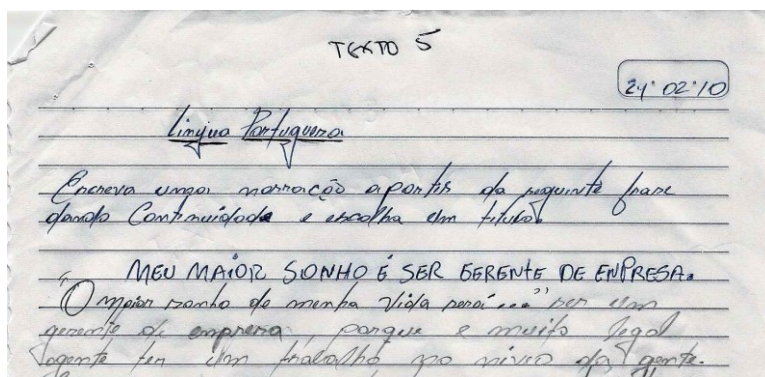 TEXTO 5
24.02.10
Lingua Portuguesa
Escreva uma narração apartir da seguinte frase
dando Continuidade e escolha um titulo.
MEU MAIOR SONHO É SER GERENTE DE ENPRESA.
"O maior sonho de minha vida será..." ser um
gerente de empresa porque e muito legal
agente ter um trabalho no nivel da gente.